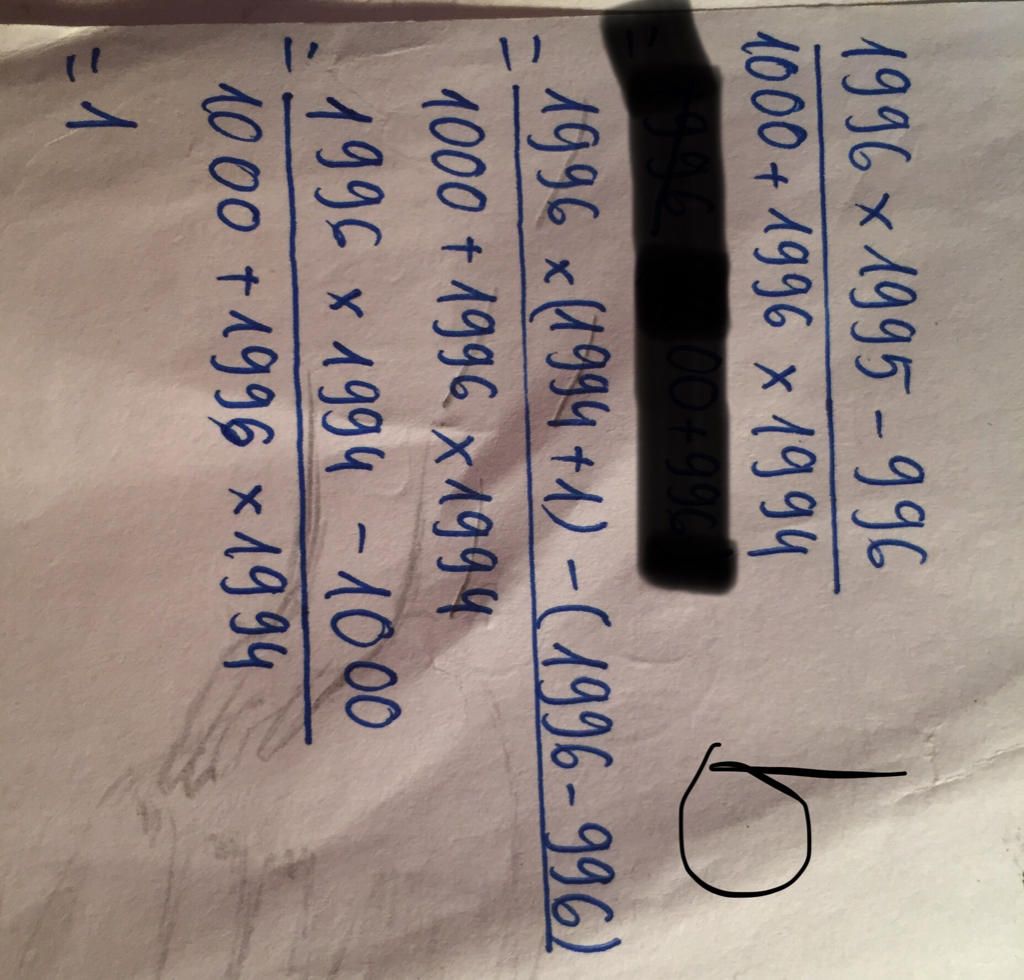 1996 × 1995 - 996
1000 + 1996 × 1994
= 1996 × (1994 + 1) - (1996 - 996)
1000 + 1996 × 1994
= 1996 × 1994 - 1000
1000 + 1996 × 1994
= 1